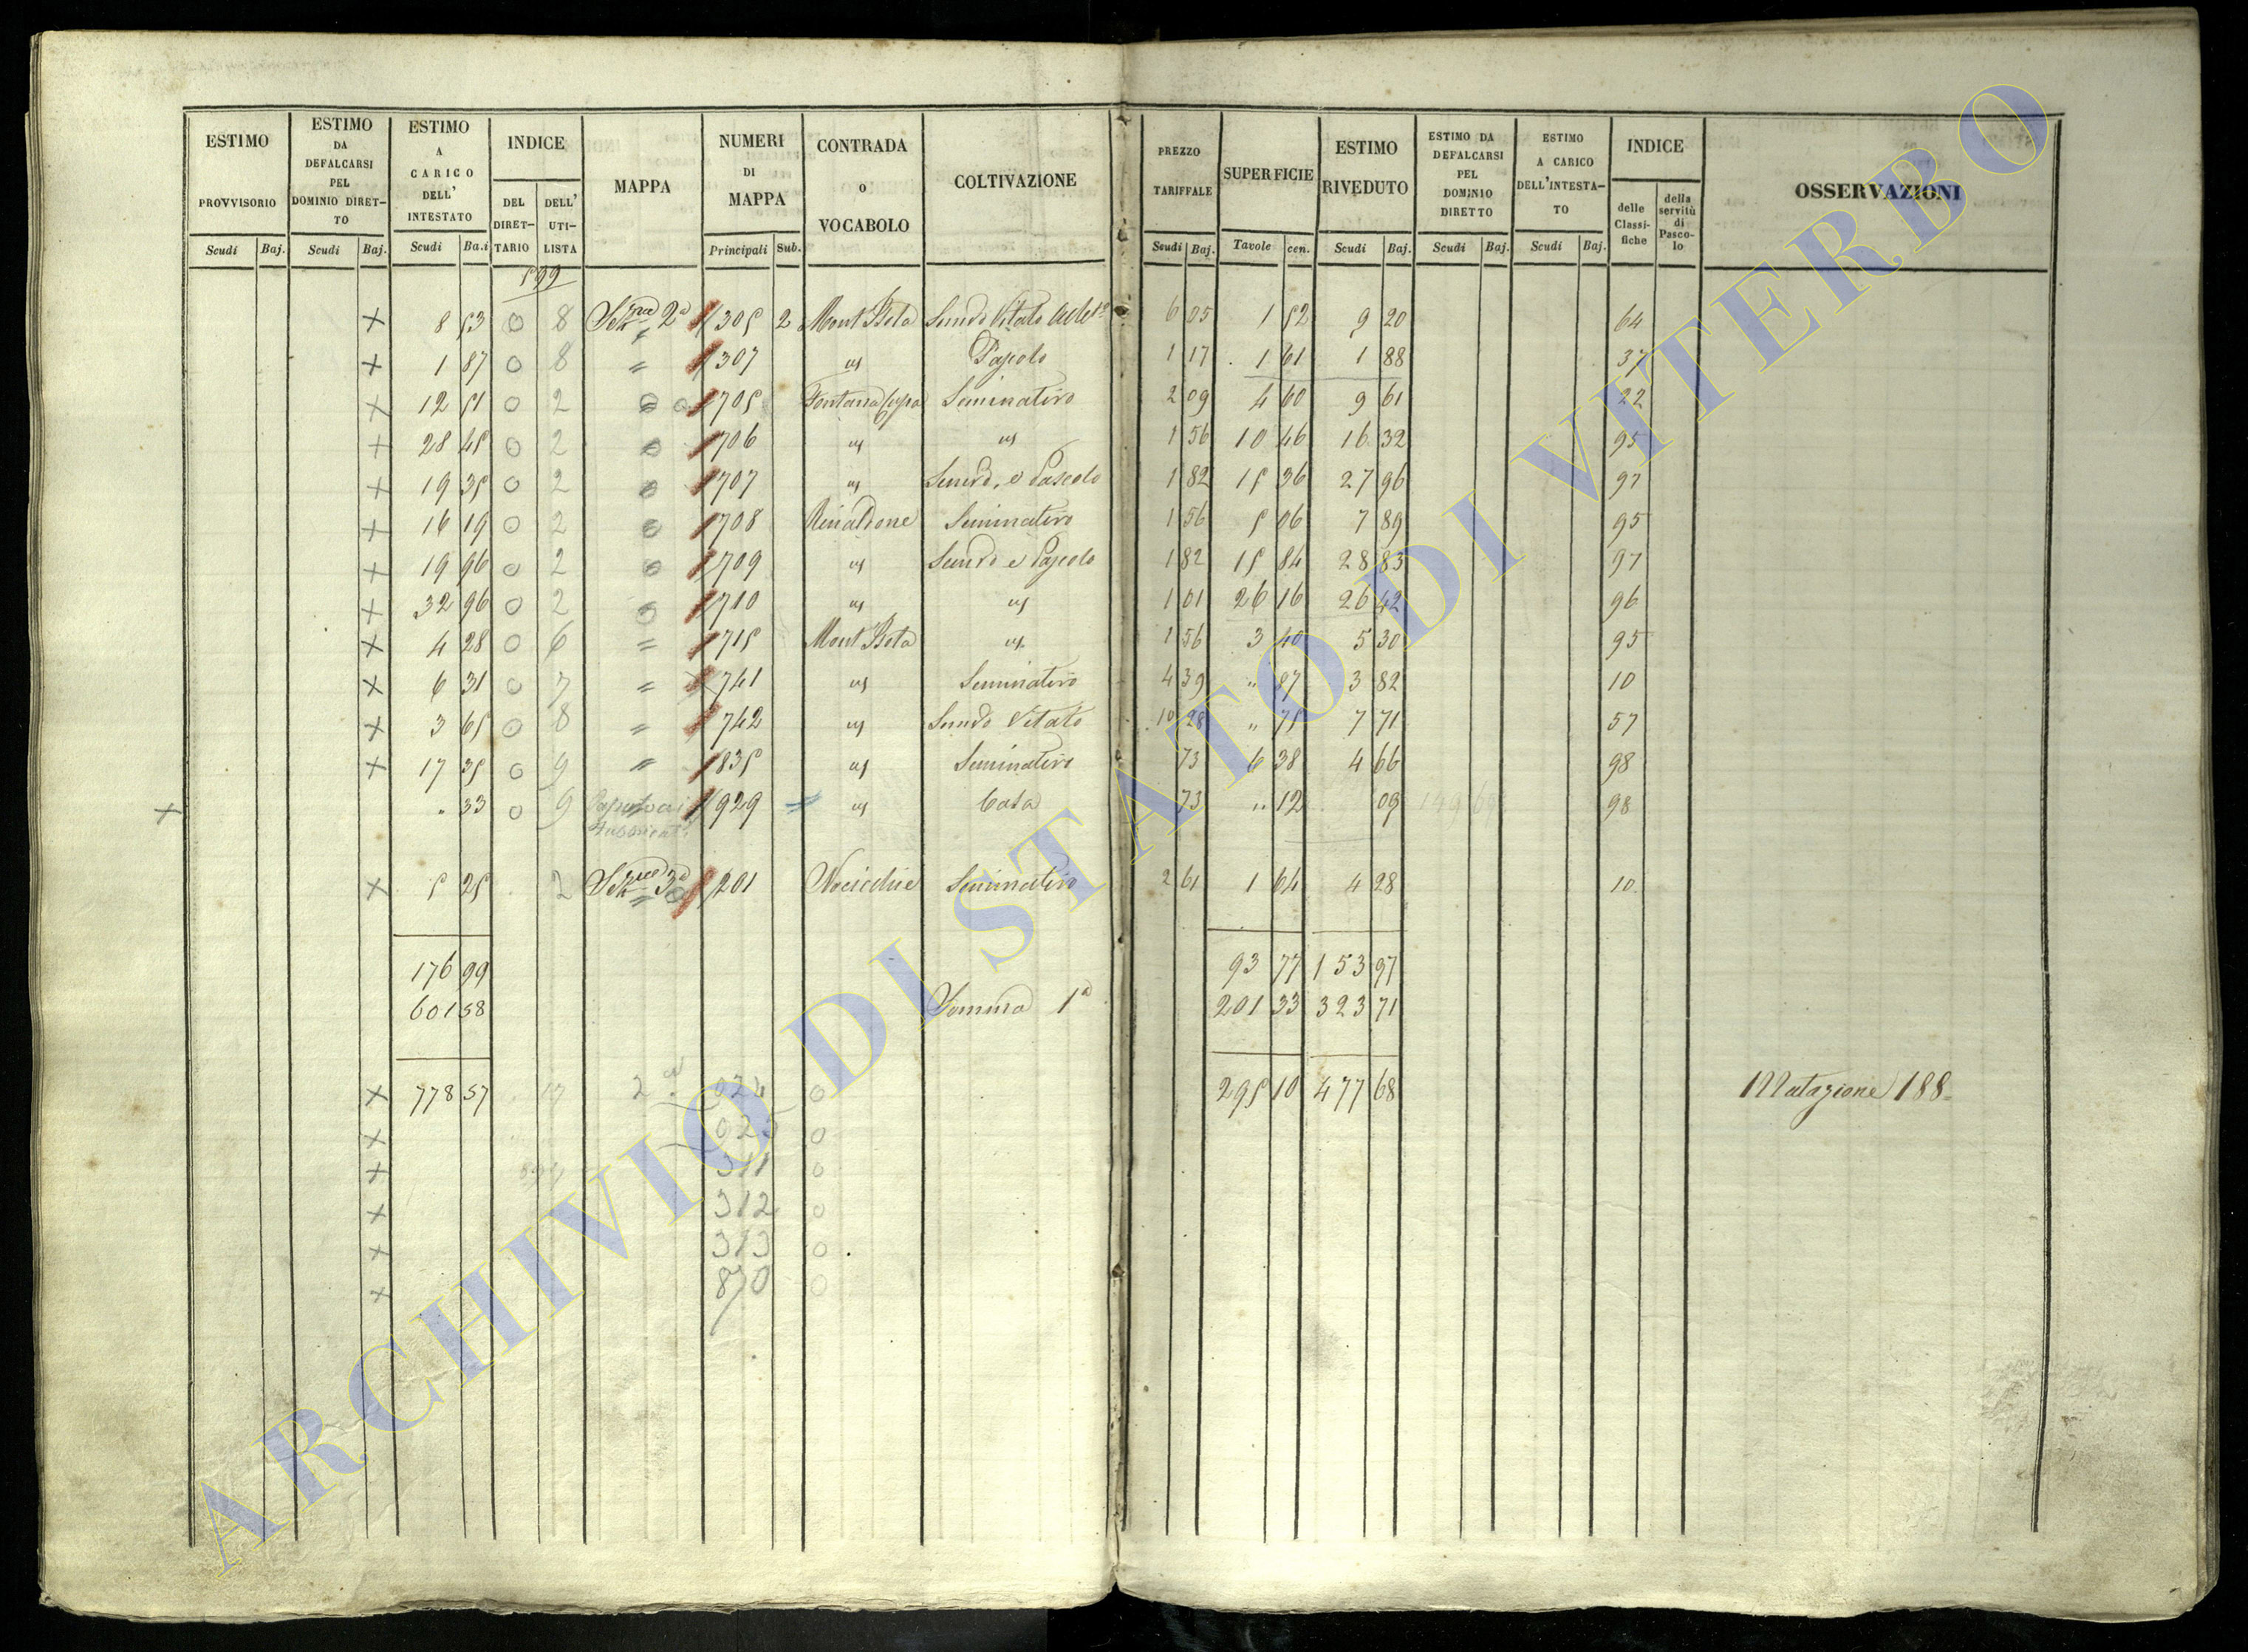 ESTIMO PROVVISORIO | ESTIMO DA DEFALCARSI PEL DOMINIO DIRET-TO | ESTIMO A CARICO DELL' INTESTATO | INDICE | MAPPA | NUMERI DI MAPPA | CONTRADA o VOCABOLO | COLTIVAZIONE | PREZZO TARIFFALE | SUPERFICIE | ESTIMO RIVEDUTO | ESTIMO DA DEFALCARSI PEL DOMINIO DIRETTO | ESTIMO A CARICO DELL'INTESTA-TO | INDICE | OSSERVAZIONI
DEL DIRET-TARIO | DELL' UTI-LISTA | delle Classi-fiche | della servitù di Pasco-lo
Scudi | Baj. | Scudi | Baj. | Scudi | Ba.i | Principali | Sub. | Scudi | Baj. | Tavole | cen. | Scudi | Baj. | Scudi | Baj. | Scudi | Baj.
599
x 8 53 0 8 2a 305 2 Mont Beto 6 05 1 52 9 20 64
x 1 87 0 8 = 307 us Pascolo 1 17 1 61 1 88 37
x 12 51 0 2 705 Fontana Seminativo 2 09 4 60 9 61 22
x 28 45 0 2 706 us us 1 56 10 46 16 32 95
x 19 35 0 2 707 us e Pascolo 1 82 15 36 27 96 97
x 16 19 0 2 708 Rinaldone Seminativo 1 56 5 06 7 89 95
x 19 96 0 2 709 us e Pascolo 1 82 15 84 28 83 97
x 32 96 0 2 710 us us 1 01 26 16 26 42 96
x 4 28 0 6 = 715 Mont Beto us 1 56 3 40 5 30 95
x 6 31 0 7 = 741 us Seminativo 4 39 " 87 3 82 10
x 3 65 0 8 = 742 us Vitato 10 28 " 75 7 71 57
x 17 35 0 9 = 835 us Seminativo 73 6 38 4 66 98
x " 33 0 9 929 us Casa 73 " 12 09 98
x 5 25 2 3a 201 Seminativo 2 61 1 64 4 28 10
176 99 93 77 153 97
601 58 Somma 1a 201 33 323 71
x 778 57 295 10 477 68 Mutazione 188
x 0
x 311 0
x 312 0
x 313 0
x 870 0
ARCHIVIO DI STATO DI VITERBO